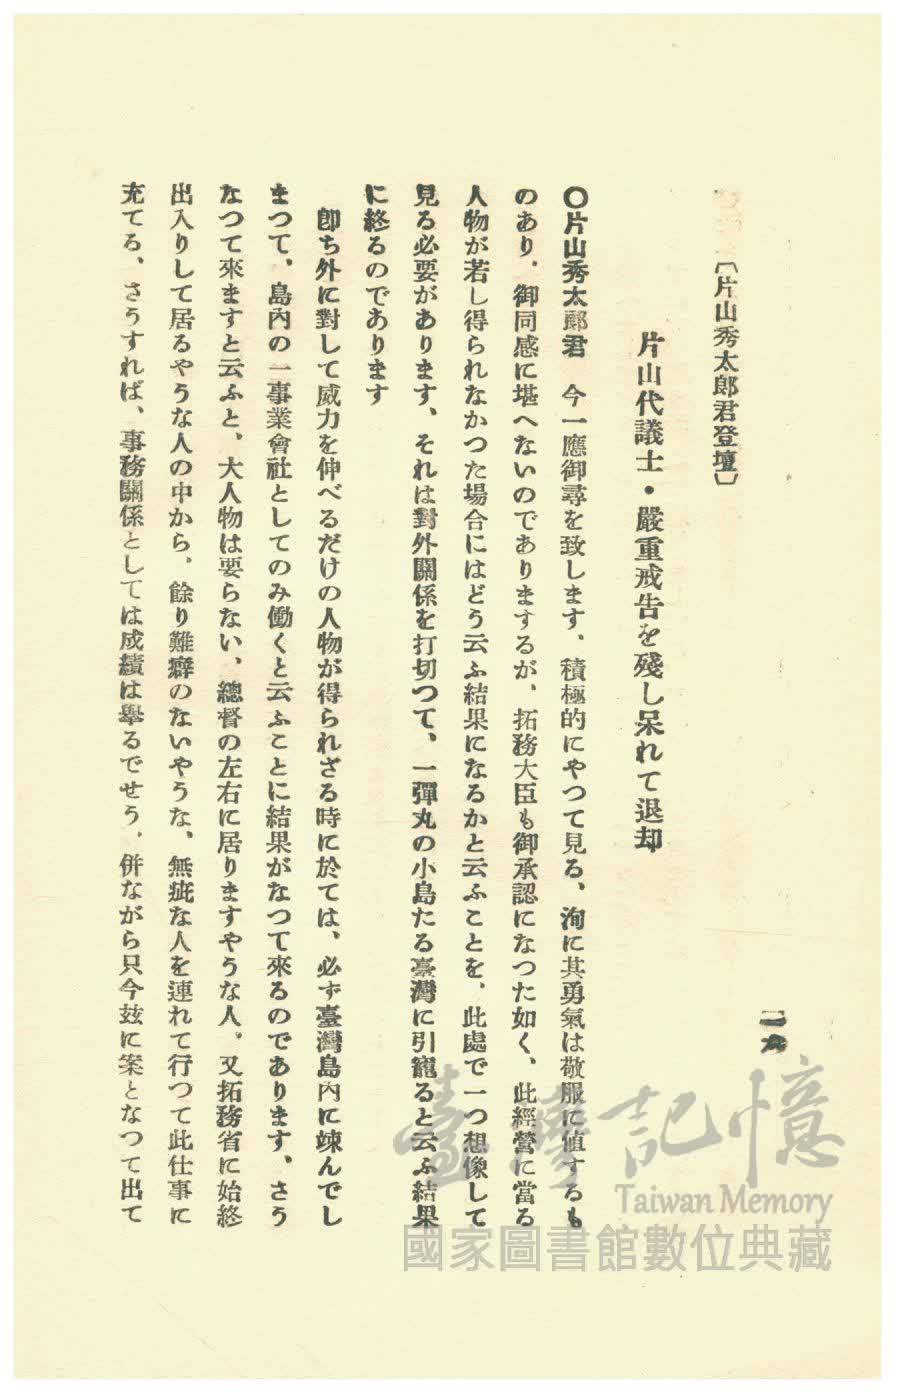 一六
〔片山秀太郎君登壇〕
片山代議士・嚴重戒告を殘し呆れて退却
〇片山秀太郞君　今一應御尋を致します、積極的にやつて見る、洵に其勇氣は敬服に値するも
のあり、御同感に堪へないのでありまするが、拓務大臣も御承認になつた如く、此經營に當る
人物が若し得られなかつた場合にはどう云ふ結果になるかと云ふことを、此處で一つ想像して
見る必要があります、それは對外關係を打切つて、一彈丸の小島たる臺灣に引寵ると云ふ結果
に終るのであります
卽ち外に對して威力を伸べるだけの人物が得られざる時に於ては、必ず臺灣島內に竦んでし
まつて、島內の一事業會社としてのみ働くと云ふことに結果がなつて來るのであります、さう
なつて來ますと云ふと、大人物は要らない、總督の左右に居りますやうな人、又拓務省に始終
出入りして居るやうな人の中から、餘り難癖のないやうな、無疵な人を連れて行つて此仕事に
充てる、さうすれば、事務關係としては成績は擧るでせう、併ながら只今玆に案となつて出て
臺灣記憶
Taiwan Memory
國家圖書館數位典藏